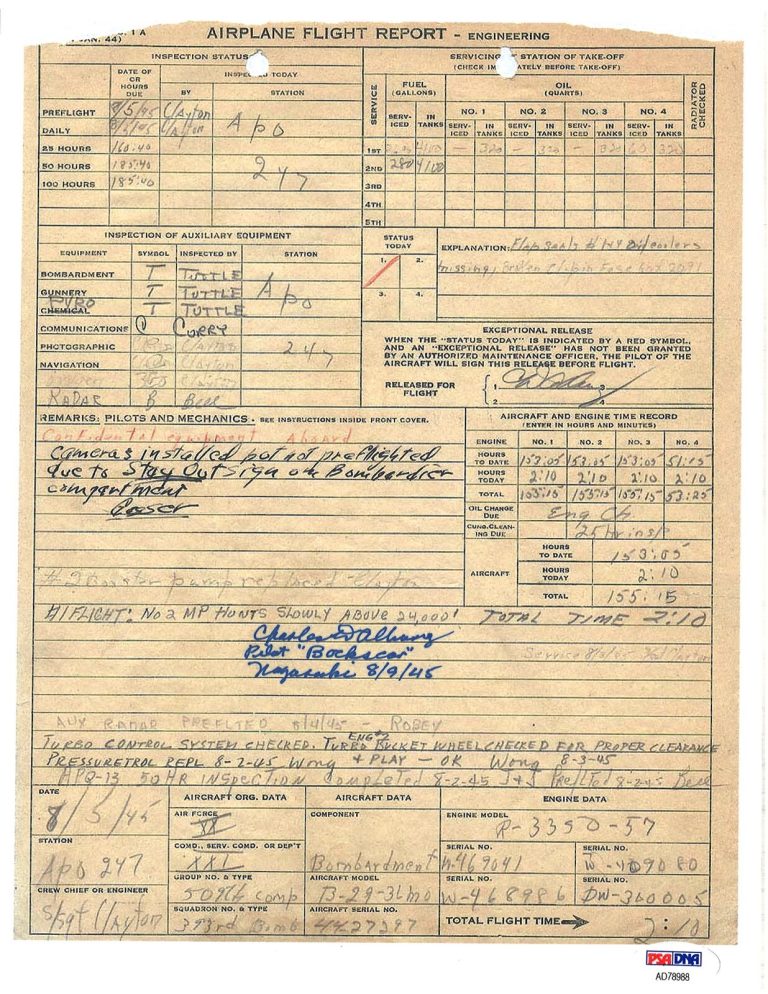 1 A
JAN. 44)
AIRPLANE FLIGHT REPORT - ENGINEERING
INSPECTION STATUS
DATE OF OR HOURS DUE
INSPECTED TODAY
BY
STATION
PREFLIGHT 8/5/45 Clayton
DAILY 8/5/45 Clayton
Apo
247
25 HOURS 160:40
50 HOURS 185:40
100 HOURS 185:40
SERVICING STATION OF TAKE-OFF
(CHECK IMMEDIATELY BEFORE TAKE-OFF)
SERVICE
FUEL (GALLONS)
OIL (QUARTS)
RADIATOR CHECKED
NO. 1 NO. 2 NO. 3 NO. 4
SERV-ICED IN TANKS SERV-ICED IN TANKS SERV-ICED IN TANKS SERV-ICED IN TANKS SERV-ICED IN TANKS
1ST 4100 — 320 — 320 — 320 60 320
2ND 280 4100
3RD
4TH
5TH
INSPECTION OF AUXILIARY EQUIPMENT
EQUIPMENT SYMBOL INSPECTED BY STATION
BOMBARDMENT T TUTTLE
GUNNERY T TUTTLE
PYRO
CHEMICAL T TUTTLE
Apo
COMMUNICATIONS CURRY
PHOTOGRAPHIC
247
NAVIGATION
RADAR B Bell
STATUS TODAY
1. 2.
3. 4.
EXPLANATION: Flap seals # 1+4 Oil coolers
missing,
EXCEPTIONAL RELEASE
WHEN THE "STATUS TODAY" IS INDICATED BY A RED SYMBOL,
AND AN "EXCEPTIONAL RELEASE" HAS NOT BEEN GRANTED
BY AN AUTHORIZED MAINTENANCE OFFICER, THE PILOT OF THE
AIRCRAFT WILL SIGN THIS RELEASE BEFORE FLIGHT.
RELEASED FOR FLIGHT
1 3
2 4
REMARKS: PILOTS AND MECHANICS - SEE INSTRUCTIONS INSIDE FRONT COVER.
Confidental equipment Aboard
Cameras installed but not preflighted
due to Stay Out Sign on Bombardier
compartment
#2 Booster pump replaced - Clayton
AIRCRAFT AND ENGINE TIME RECORD
(ENTER IN HOURS AND MINUTES)
ENGINE NO. 1 NO. 2 NO. 3 NO. 4
HOURS TO DATE 153:05 153:05 153:05 51:15
HOURS TODAY 2:10 2:10 2:10 2:10
TOTAL 155:15 155:15 155:15 53:25
OIL CHANGE DUE Eng Ch
CUNO. CLEAN-ING DUE 25 hr insp
AIRCRAFT
HOURS TO DATE 153:05
HOURS TODAY 2:10
TOTAL 155:15
A/FLIGHT: NO 2 MP HUNTS SLOWLY ABOVE 24,000' TOTAL TIME 2:10
Charles D Albury
Pilot "Bockscar"
Nagasaki 8/9/45
AUX RADAR PREFLTED 8/4/45 - ROBEY
TURBO CONTROL SYSTEM CHECKED. TURBO BUCKET WHEEL CHECKED FOR PROPER CLEARANCE
ENG #2
PRESSURETROL REPL 8-2-45 Wong + PLAY - OK Wong 8-3-45
APQ-13 50 HR INSPECTION Completed 8-2-45 Preflted 8-2-45 Bell
DATE
8/5/45
STATION
Apo 247
CREW CHIEF OR ENGINEER
S/Sgt Clayton
AIRCRAFT ORG. DATA
AIR FORCE
XX
COMD., SERV. COMD. OR DEP'T
XXI
GROUP NO. & TYPE
509th comp
SQUADRON NO. & TYPE
393rd Bomb
AIRCRAFT DATA
COMPONENT
Bombardment
AIRCRAFT MODEL
B-29-36mo
AIRCRAFT SERIAL NO.
4427297
ENGINE DATA
ENGINE MODEL
R-3350-57
SERIAL NO. SERIAL NO.
W-469041 W-469080
SERIAL NO. SERIAL NO.
W-468986 DW-360005
TOTAL FLIGHT TIME 2:10
PSA DNA
AD78988